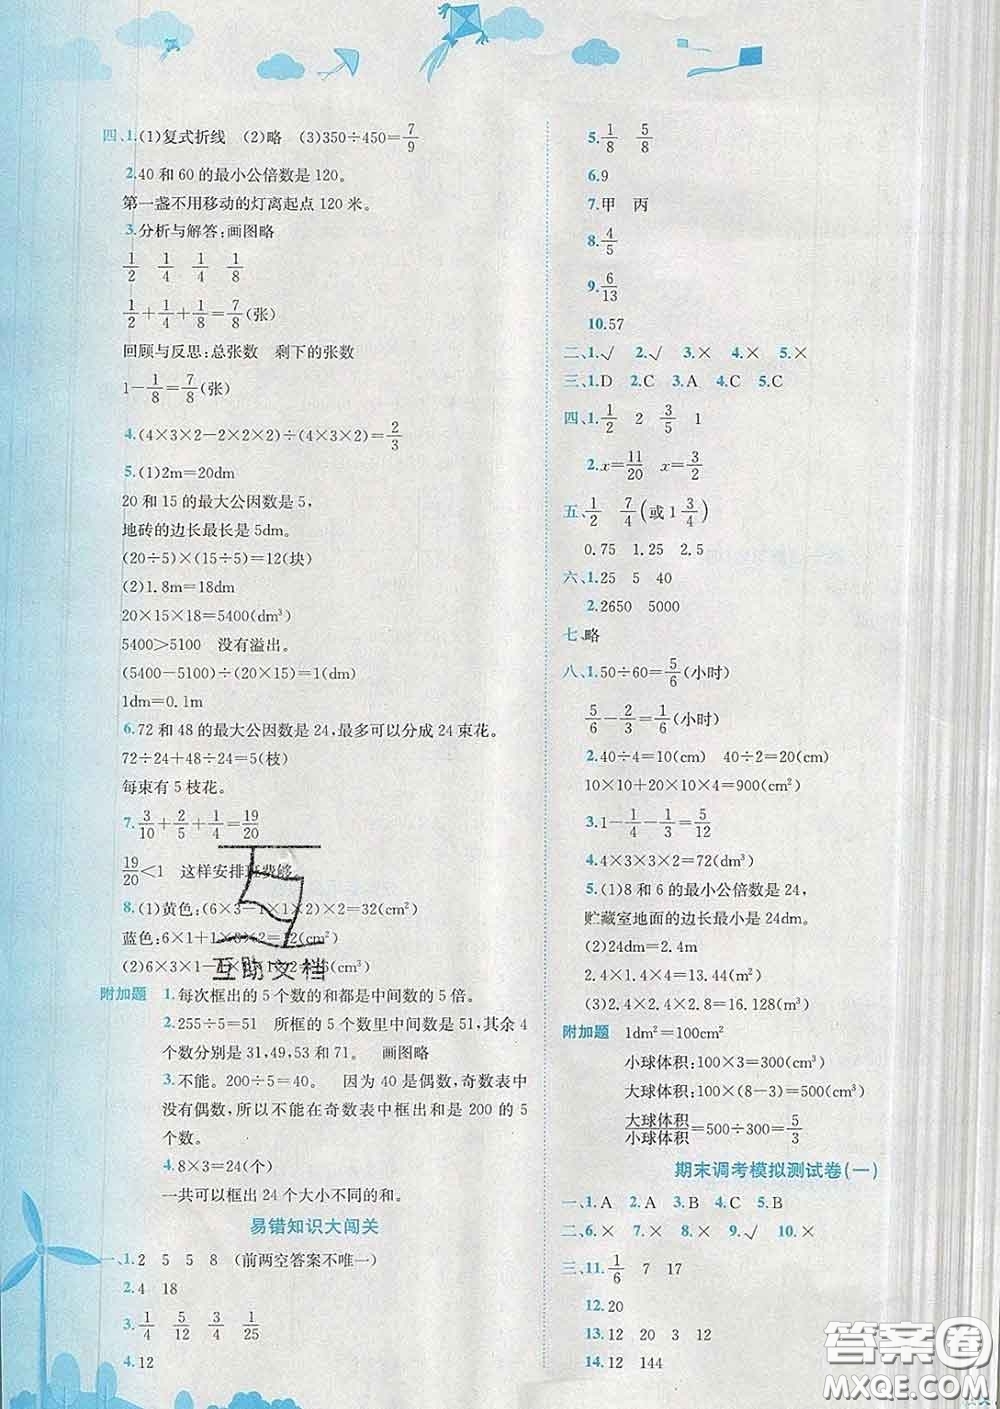 四、1.(1)复式折线 (2)略 (3)350÷450=7/9
2.40和60的最小公倍数是120。
第一盏不用移动的灯离起点120米。
3.分析与解答:画图略
1/2 1/4 1/4 1/8
1/2+1/4+1/8=7/8(张)
回顾与反思:总张数 剩下的张数
1-1/8=7/8(张)
4.(4×3×2-2×2×2)÷(4×3×2)=2/3
5.(1)2m=20dm
20和15的最大公因数是5,
地砖的边长最长是5dm。
(20÷5)×(15÷5)=12(块)
(2)1.8m=18dm
20×15×18=5400(dm³)
5400>5100 没有溢出。
(5400-5100)÷(20×15)=1(dm)
1dm=0.1m
6.72和48的最大公因数是24,最多可以分成24束花。
72÷24+48÷24=5(枝)
每束有5枝花。
7.3/10+2/5+1/4=19/20
19/20<1 这样安排班费够。
8.(1)黄色:(6×3-1×1×2)×2=32(cm²)
蓝色:6×1+1×8×2=22(cm²)
(2)6×3×1-1×1×1×2=16(cm³)
互助文档
附加题 1.每次框出的5个数的和都是中间数的5倍。
2.255÷5=51 所框的5个数里中间数是51,其余4
个数分别是31,49,53和71。 画图略
3.不能。200÷5=40。 因为40是偶数,奇数表中
没有偶数,所以不能在奇数表中框出和是200的5
个数。
4.8×3=24(个)
一共可以框出24个大小不同的和。
易错知识大闯关
一、1.2 5 5 8 (前两空答案不唯一)
2.4 18
3.1/4 5/12 3/4 1/25
4.12
5.1/8 5/8
6.9
7.甲 丙
8.4/5
9.6/13
10.57
二、1.√ 2.√ 3.× 4.× 5.×
三、1.D 2.C 3.A 4.C 5.C
四、1.1/2 2 3/5 1
2.x=11/20 x=3/2
五、1/2 7/4(或1 3/4)
0.75 1.25 2.5
六、1.25 5 40
2.2650 5000
七、略
八、1.50÷60=5/6(小时)
5/6-2/3=1/6(小时)
2.40÷4=10(cm) 40÷2=20(cm)
10×10+20×10×4=900(cm²)
3.1-1/4-1/3=5/12
4.4×3×3×2=72(dm³)
5.(1)8和6的最小公倍数是24,
贮藏室地面的边长最小是24dm。
(2)24dm=2.4m
2.4×1.4×4=13.44(m²)
(3)2.4×2.4×2.8=16.128(m³)
附加题 1dm²=100cm²
小球体积:100×3=300(cm³)
大球体积:100×(8-3)=500(cm³)
大球体积/小球体积=500÷300=5/3
期末调考模拟测试卷(一)
一、1.A 2.A 3.B 4.C 5.B
二、6.× 7.× 8.× 9.√ 10.×
三、11.1/6 7 17
12.20
13.12 20 3 12
14.12 144
答案圈
MXQE.COM